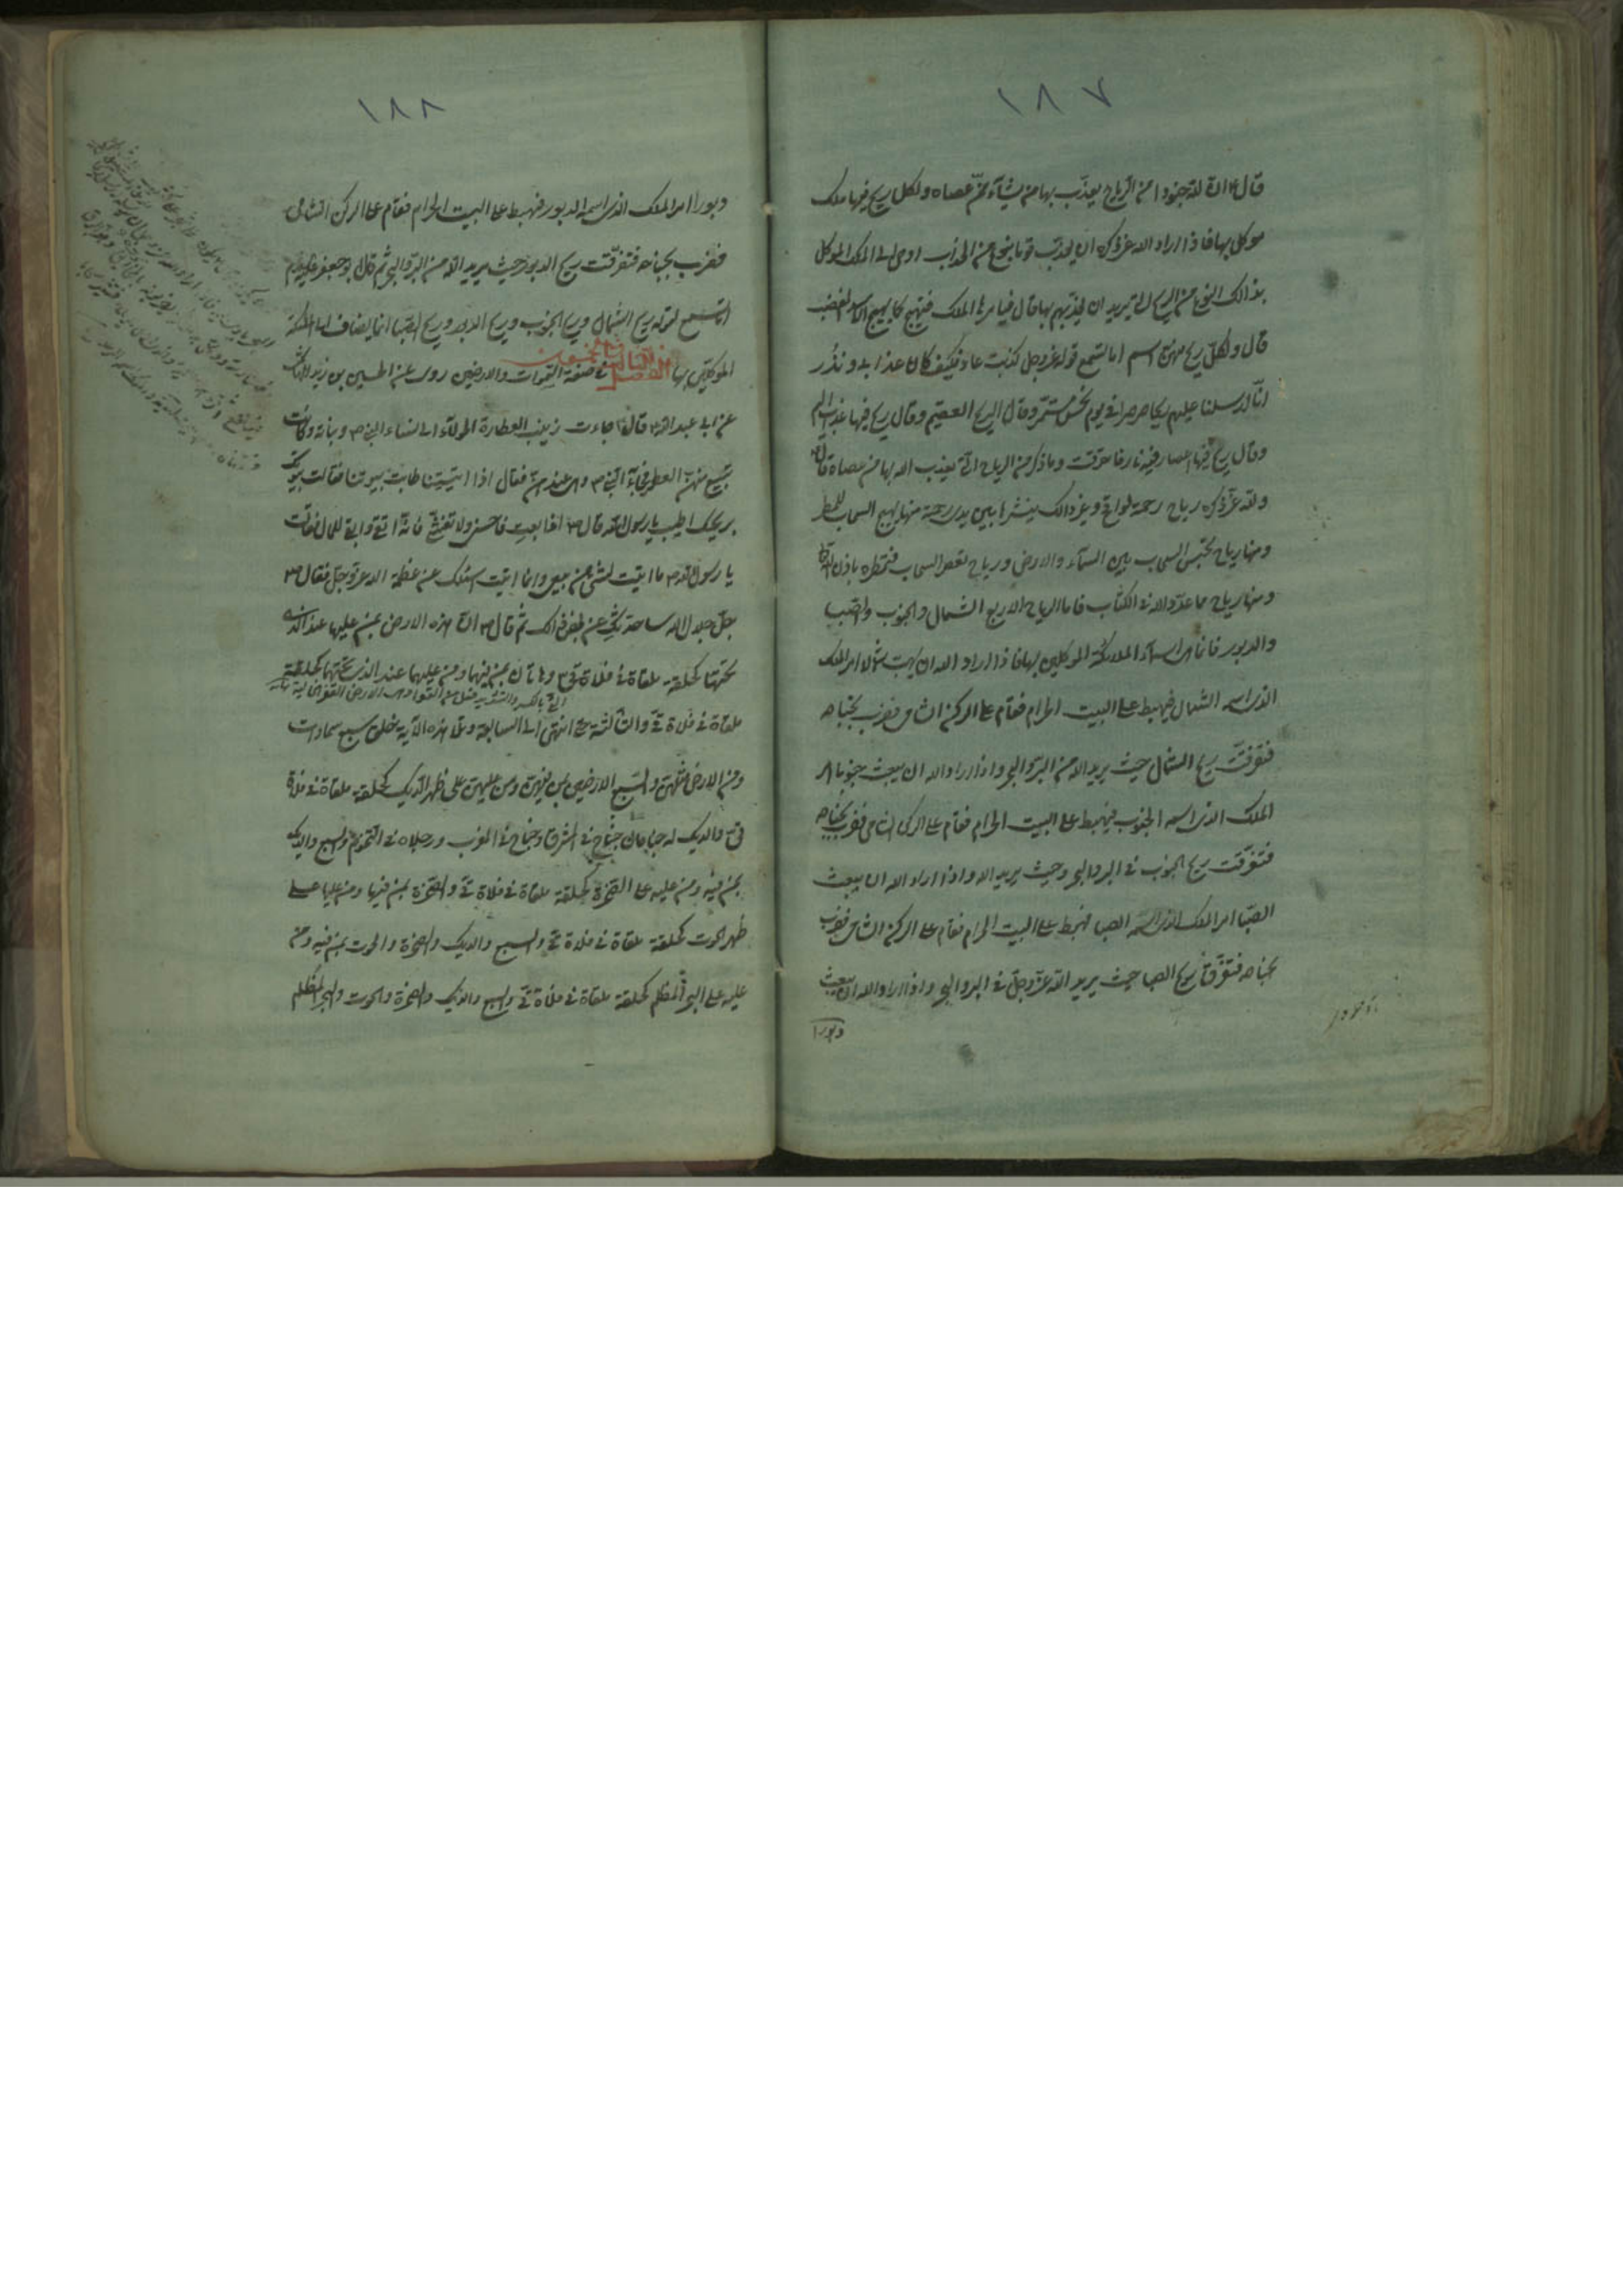 ١٨٧
قال ان لله جنودا من الرياح يعذب بها من يشآء ممن عصاه ولكل ريح فيها ملك
موكل بها فاذا اراد الله عز ذكره ان يعذب قوما بنوع من العذاب اوحى الى الملك الموكل
بذالك النوع من الريح التى يريد ان يعذبهم بها قال فيامرها الملك فتهيج كما يهيج الاسد المغضب
قال ولكل ريح منهن اسم اما تسمع قوله عز وجل كذبت عاد فكيف كان عذابى ونذر
انا ارسلنا عليهم ريحا صرصرا فى يوم نحس مستمر وقال الريح العقيم وقال ريح فيها عذاب اليم
وقال ريح فيها اعصار فيه نار فاحترقت وما ذكر من الرياح التى يعذب الله بها من عصاه قال
ولله عز ذكره رياح رحمة لواقح وغير ذالك ينشرها بين يدى رحمته منها يهيج السحاب للمطر
ومنها رياح تحبس السحاب بين السمآء والارض ورياح تعصر السحاب فتمطره باذن الله
ومنها رياح مما عدد الله فى الكتاب فاما الرياح الاربع الشمال والجنوب والصبا
والدبور فانما هى اسمآء الملائكة الموكلين بها فاذا اراد الله ان يهب شمالا امر الملك
الذى اسمه الشمال فيهبط على البيت الحرام فقام على الركن الشامى فضرب بجناحه
فتفرقت ريح الشمال حيث يريد الله من البر والبحر واذا اراد الله ان يبعث جنوبا امر
الملك الذى اسمه الجنوب فيهبط على البيت الحرام فقام على الركن الشامى فضرب بجناحه
فتفرقت ريح الجنوب فى البر والبحر وحيث يريد الله واذا اراد الله ان يبعث
الصبا امر الملك الذى اسمه الصبا فهبط على البيت الحرام فقام على الركن الشامى فضرب
بجناحه فتفرقت ريح الصبا حيث يريد الله عز وجل فى البر والبحر واذا اراد الله ان يبعث
دبورا
١٨٨
دبورا امر الملك الذى اسمه الدبور فهبط على البيت الحرام فقام على الركن الشامى
فضرب بجناحه فتفرقت ريح الدبور حيث يريد الله من البر والبحر ثم قال ابو جعفر عليه السلام
اما تسمع لقوله ريح الشمال وريح الجنوب وريح الدبور وريح الصبا انما يضاف الى الملائكة
الموكلين بها الفصل الثالث فى صفة السموات والارضين روى عن الحسين بن زيد الهاشمى
عن ابى عبد الله قال جاءت زينب العطارة الحولاء الى نساء النبى ص وبناته وكانت
تبيع منهن العطر فجآء النبى ص وهى عندهن فقال اذا اتيتنا طابت بيوتنا فقالت بيوتك
بريحك اطيب يا رسول الله قال ص اذا بعت فاحسنى ولا تغشى فانه اتقى وابقى للمال فقالت
يا رسول الله ص ما اتيت لشىء من بيعى وانما اتيت اسئلك عن عظمة الله عز وجل فقال ص
جل جلال الله ساحدثك عن بعض ذالك ثم قال ص ان هذه الارض بمن عليها عند التى
تحتها كحلقة ملقاة فى فلاة قى وهاتان بمن فيهما ومن عليهما عند الذى تحتهما كحلقة
ملقاة فى فلاة قى والثالثة حتى انتهى الى السابعة وتلا هذه الآية خلق سبع سماوات
ومن الارض مثلهن والسبع الارضين بمن فيهن ومن عليهن على ظهر الديك كحلقة ملقاة فى فلاة
قى والديك له جناحان جناح فى المشرق وجناح فى المغرب ورجلاه فى التخوم والسبع والديك
بمن فيه ومن عليه على الصخرة كحلقة ملقاة فى فلاة قى والصخرة بمن فيها ومن عليها على
ظهر الحوت كحلقة ملقاة فى فلاة قى والسبع والديك والصخرة والحوت بمن فيه ومن
عليه على البحر المظلم كحلقة ملقاة فى فلاة قى والسبع والديك والصخرة والحوت والبحر المظلم